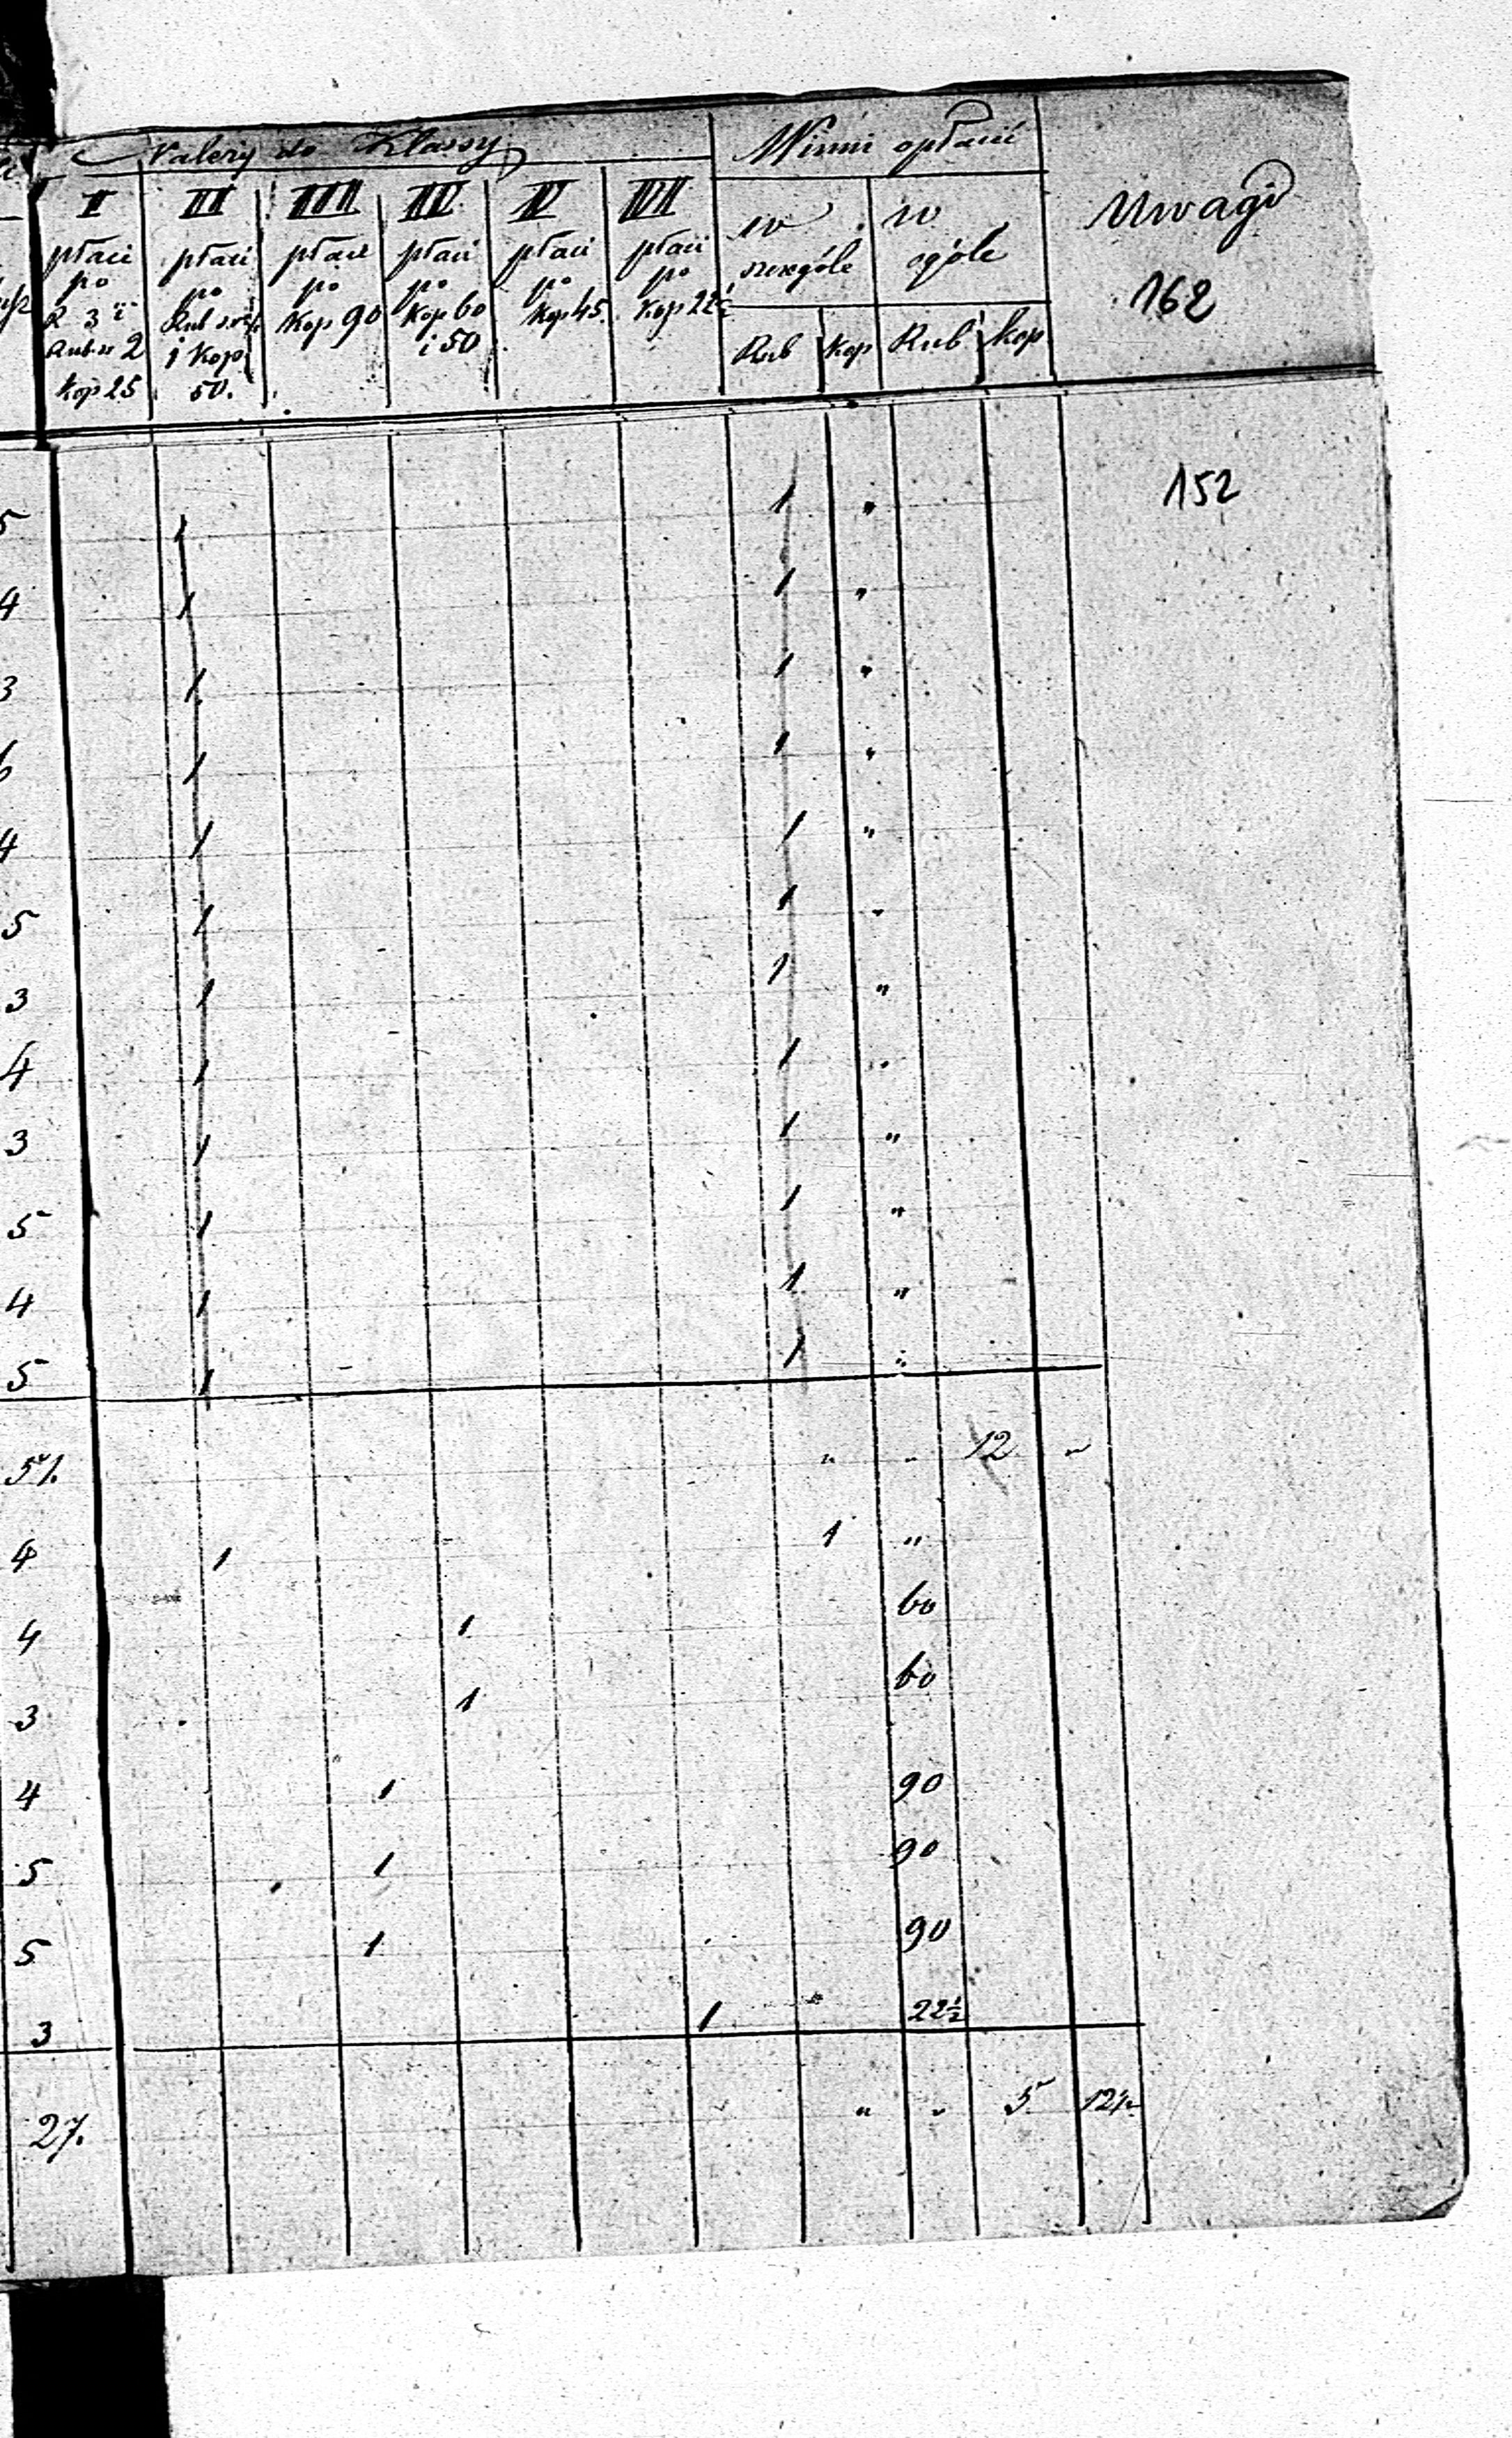 Należy do Klassy
Winni opłacić
Uwagi
I II III IV V VI
w szczególe
w ogóle
płaci po R 3 i Rub sr 2 kop 25
płaci po Rub sr 1 i Kop 50.
płaci po Kop 90
płaci po Kop 60 i 50
płaci po Kop 45.
płaci po Kop 22½
Rub kop Rub kop
162
152
5 1 1 "
4 1 1 "
3 1 1 "
6 1 1 "
4 1 1 "
5 1 1 "
3 1 1 "
4 1 1 "
3 1 1 "
5 1 1 "
4 1 1 "
5 1 1 "
51. " " 12 "
4 1 1 "
4 1 60
3 1 60
4 1 90
5 1 90
5 1 90
3 1 " 22½
27. " " 5 12½